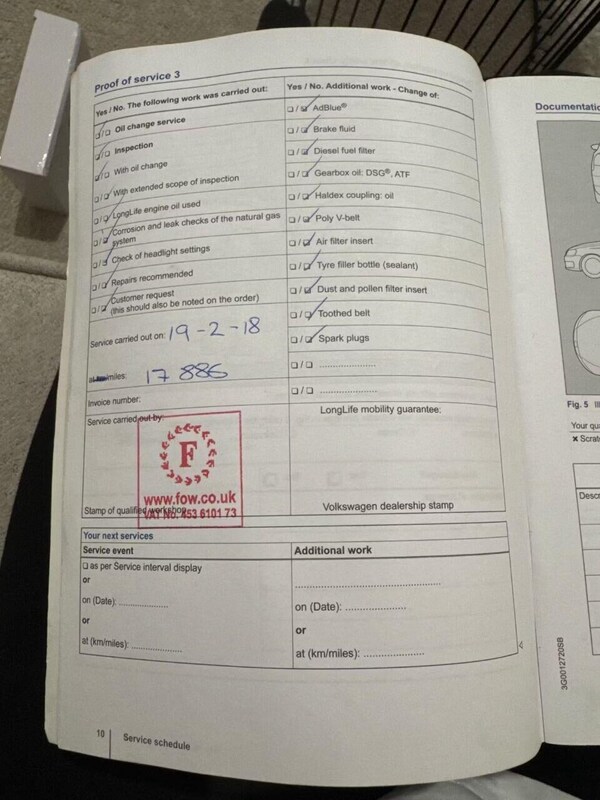 Proof of service 3
Yes / No. The following work was carried out:
❏/❏ Oil change service
❏/❏ Inspection
❏/❏ With oil change
❏/❏ With extended scope of inspection
❏/❏ LongLife engine oil used
❏/❏ Corrosion and leak checks of the natural gas
system
❏/❏ Check of headlight settings
❏/❏ Repairs recommended
❏/❏ Customer request
(this should also be noted on the order)
Service carried out on: 19-2-18
miles: 17 886
Invoice number:
Service carried out by:
F
www.fow.co.uk
VAT No. 453 6101 73
Stamp of qualified workshop
Yes / No. Additional work - Change of:
❏/❏ AdBlue®
❏/❏ Brake fluid
❏/❏ Diesel fuel filter
❏/❏ Gearbox oil: DSG®, ATF
❏/❏ Haldex coupling: oil
❏/❏ Poly V-belt
❏/❏ Air filter insert
❏/❏ Tyre filler bottle (sealant)
❏/❏ Dust and pollen filter insert
❏/❏ Toothed belt
❏/❏ Spark plugs
❏/❏ ....................
❏/❏ ....................
LongLife mobility guarantee:
Volkswagen dealership stamp
Your next services
Service event
❏ as per Service interval display
or
on (Date): .................
or
at (km/miles): .................
Additional work
..........................................
on (Date): .....................
or
at (km/miles): .....................
10 Service schedule
Documentatio
Fig. 5 Ill
Your qu
× Scrat
Descr
3G0012720SB